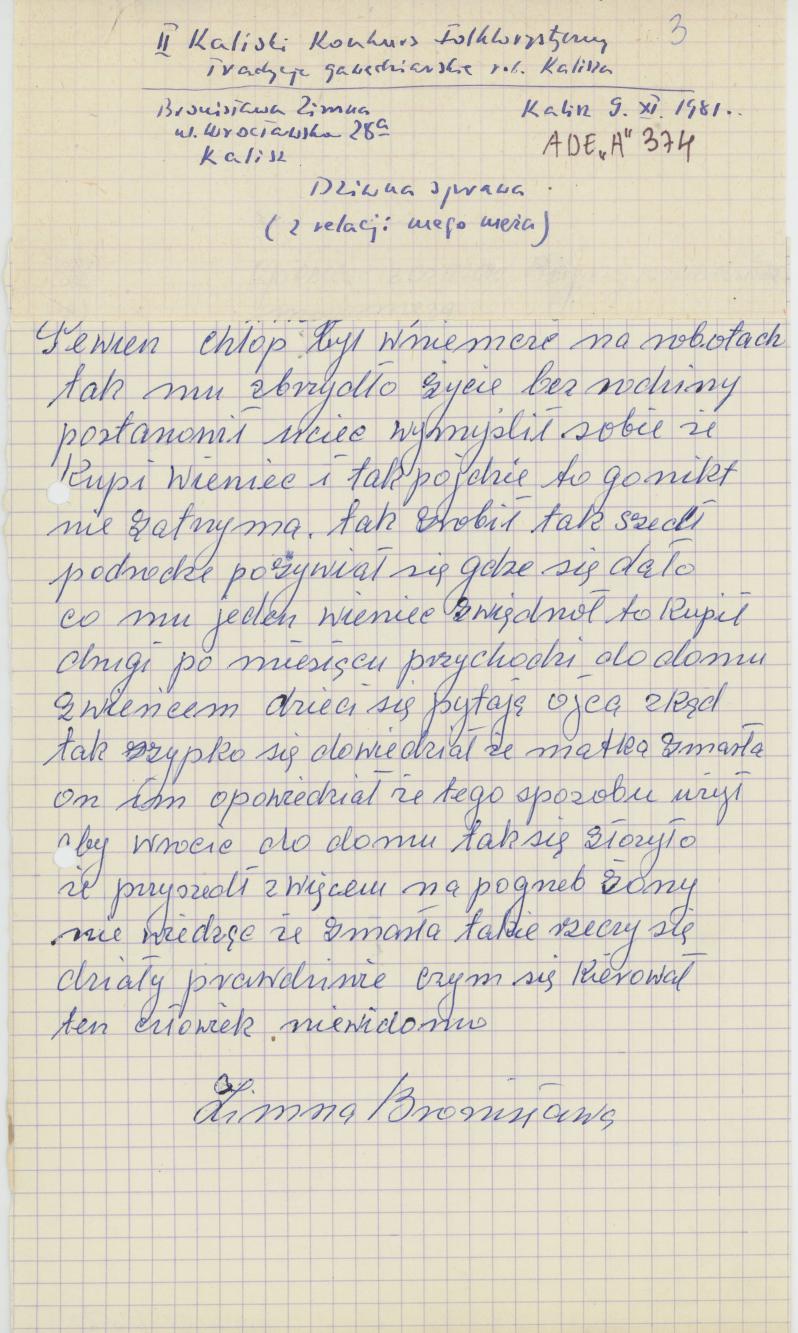 3
II Kaliski Konkurs Folklorystyczny
Tradycje gawędziarskie reg. Kalisza
Bronisława Zimna
ul. Wrocławska 28a
Kalisz
Kalisz 9. XI. 1981.
ADE „A" 374
Dziwna sprawa.
(z relacji mego męża)
Pewien chłop był wniemcze na robotach
tak mu zbrzydło życie bez rodziny
postanowił uciec wymyślił sobie że
kupi wieniec i tak pójdzie to go nikt
nie zatrzyma. tak zrobił tak szedł
podrodze pożywiał się gdze się dało
co mu jeden wieniec zwiądnoł to kupił
drugi po miesiącu przychodzi do domu
zwieńcem dzieci się pytają ojca zkąd
tak szypko się dowiedział że matka zmarła
on im opowiedział że tego sposobu użył
aby wrocic do domu taksię złożyło
że przyszedł zwięcem na pogrzeb żony
nie wiedząc że zmarła takie rzeczy się
działy prawdziwie czym się kierował
ten człowiek niewidomo
Zimna Bronisława